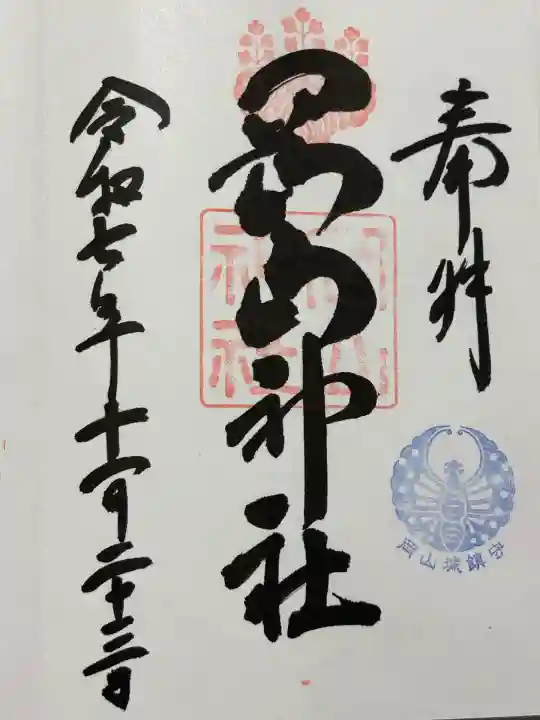 奉拝
岡山神社
岡山神社
岡山城鎮守
令和七年十一月二十三日